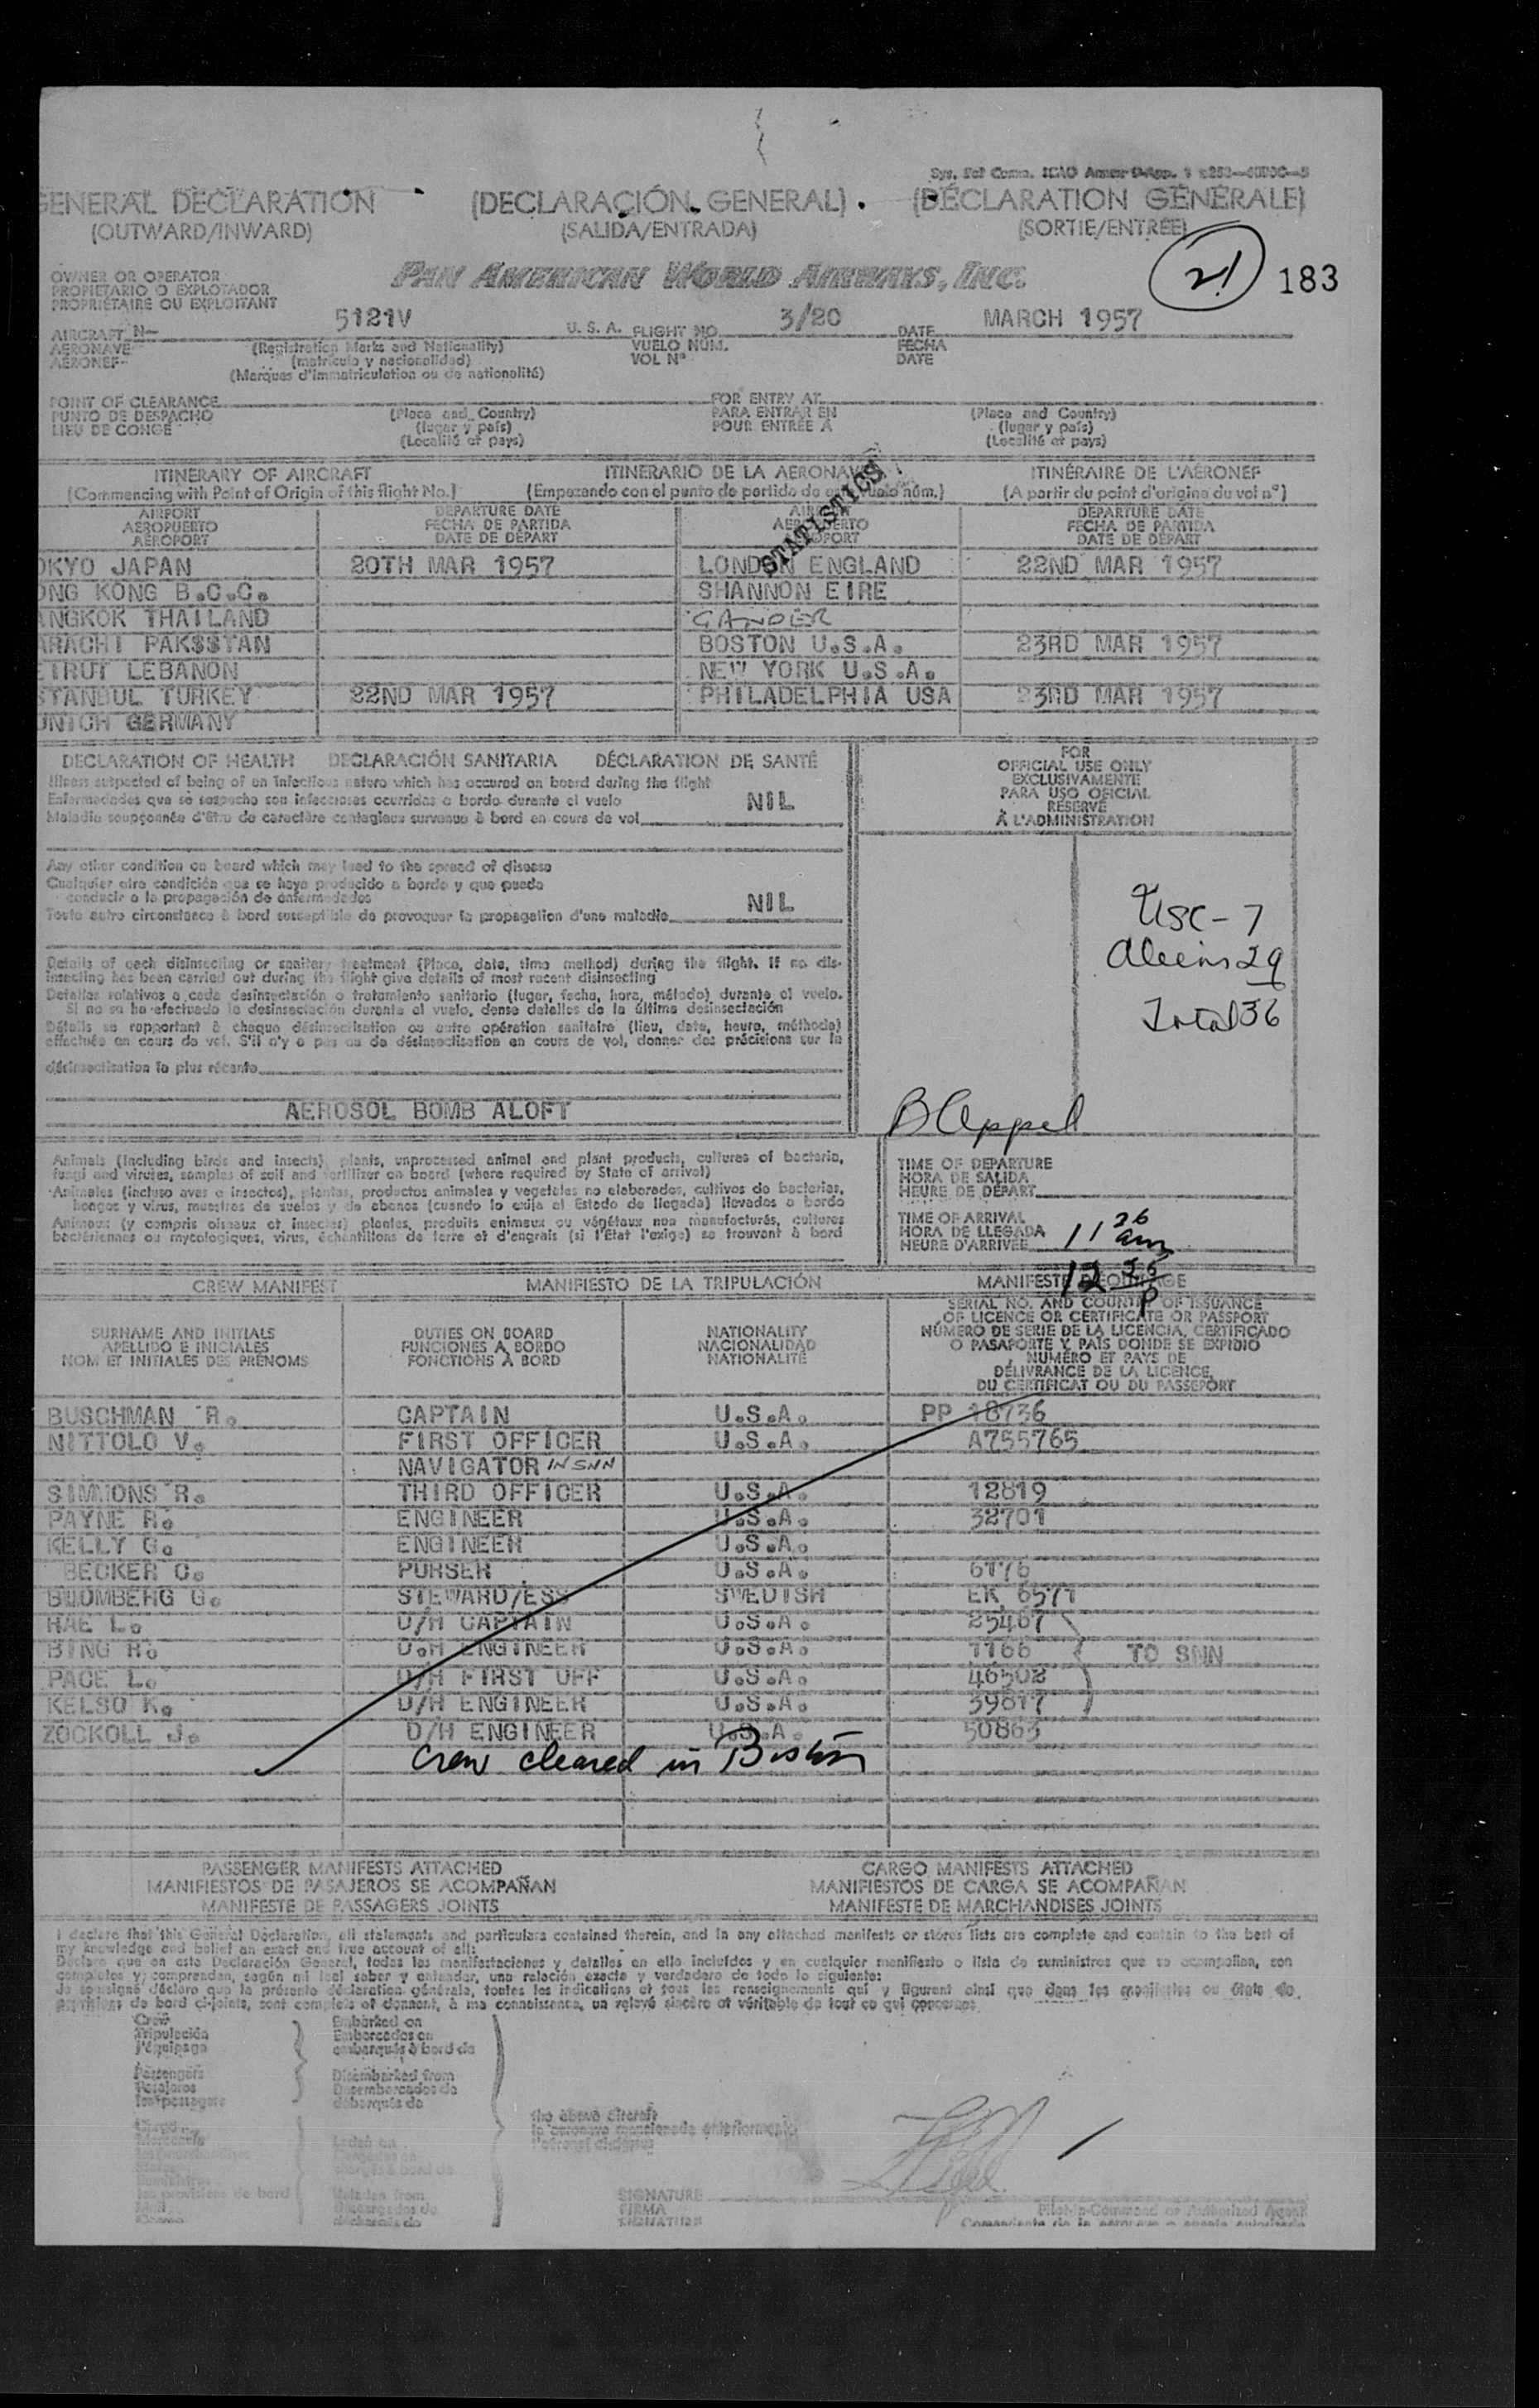 Sys. Fel Comm. ICAO Annex 9-App. 1
GENERAL DECLARATION (DECLARACIÓN GENERAL) (DÉCLARATION GÉNÉRALE)
(OUTWARD/INWARD) (SALIDA/ENTRADA) (SORTIE/ENTRÉE)
21 183
OWNER OR OPERATOR
PROPIETARIO O EXPLOTADOR
PROPRIÉTAIRE OU EXPLOITANT
PAN AMERICAN WORLD AIRWAYS, INC.
AIRCRAFT N- 5121V U. S. A. FLIGHT NO. 3/20 DATE MARCH 1957
AERONAVE (Registration Marks and Nationality) VUELO NÚM. FECHA
AÉRONEF- (matrícula y nacionalidad) VOL Nº DATE
(Marques d'immatriculation ou de nationalité)
POINT OF CLEARANCE FOR ENTRY AT
PUNTO DE DESPACHO (Place and Country) PARA ENTRAR EN (Place and Country)
LIEU DE CONGÉ (lugar y país) POUR ENTRÉE À (lugar y país)
(Localité et pays) (Localité et pays)
STATISTICS
ITINERARY OF AIRCRAFT ITINERARIO DE LA AERONAVE ITINÉRAIRE DE L'AÉRONEF
(Commencing with Point of Origin of this flight No.) (Empezando con el punto de partida de vuelo núm.) (A partir du point d'origine du vol nº)
AIRPORT DEPARTURE DATE DEPARTURE DATE
AEROPUERTO FECHA DE PARTIDA AEROPUERTO FECHA DE PARTIDA
AÉROPORT DATE DE DÉPART DATE DE DÉPART
OKYO JAPAN 20TH MAR 1957 LONDON ENGLAND 22ND MAR 1957
ONG KONG B.C.C. SHANNON EIRE
ANGKOK THAILAND GANDER
ARACHI PAKSSTAN BOSTON U.S.A. 23RD MAR 1957
EIRUT LEBANON NEW YORK U.S.A.
STANBUL TURKEY 22ND MAR 1957 PHILADELPHIA USA 23RD MAR 1957
UNICH GERMANY
DECLARATION OF HEALTH DECLARACIÓN SANITARIA DÉCLARATION DE SANTÉ
Illness suspected of being of an infectious nature which has occured on board during the flight
Enfermedades que se sospecha son infecciosas ocurridas a bordo durante el vuelo NIL
Maladie soupçonnée d'être de caractère contagieux survenue à bord en cours de vol
FOR
OFFICIAL USE ONLY
EXCLUSIVAMENTE
PARA USO OFICIAL
RÉSERVÉ
À L'ADMINISTRATION
Any other condition on board which may lead to the spread of disease
Cualquier otra condición que se haya producido a bordo y que pueda
conducir a la propagación de enfermedades NIL
Toute autre circonstance à bord susceptible de provoquer la propagation d'une maladie
USC - 7
Aliens 29
Total 36
Details of each disinsecting or sanitary treatment (Place, date, time method) during the flight. If no dis-
insecting has been carried out during the flight give details of most recent disinsecting
Detalles relativos a cada desinsectación o tratamiento sanitario (lugar, fecha, hora, método) durante el vuelo.
Si no se ha efectuado la desinsectación durante el vuelo, dense detalles de la última desinsectación
Détails se rapportant à chaque désinsectisation ou autre opération sanitaire (lieu, date, heure, méthode)
effectuée en cours de vol. S'il n'y a pas eu de désinsectisation en cours de vol, donner des précisions sur la
désinsectisation la plus récente
AEROSOL BOMB ALOFT
B Appel
Animals (including birds and insects), plants, unprocessed animal and plant products, cultures of bacteria,
fungi and viruses, samples of soil and fertilizer on board (where required by State of arrival)
Animales (incluso aves e insectos), plantas, productos animales y vegetales no elaborados, cultivos de bacterias,
hongos y virus, muestras de suelos y de abonos (cuando lo exija el Estado de llegada) llevados a bordo
Animaux (y compris oiseaux et insectes) plantes, produits animaux ou végétaux non manufacturés, cultures
bactériennes ou mycologiques, virus, échantillons de terre et d'engrais (si l'État l'exige) se trouvant à bord
TIME OF DEPARTURE
HORA DE SALIDA
HEURE DE DÉPART
TIME OF ARRIVAL
HORA DE LLEGADA
HEURE D'ARRIVÉE 11 26 am
12 36 P
CREW MANIFEST MANIFIESTO DE LA TRIPULACIÓN MANIFESTE D'EQUIPAGE
SURNAME AND INITIALS DUTIES ON BOARD NATIONALITY SERIAL NO. AND COUNTRY OF ISSUANCE
APELLIDO E INICIALES FUNCIONES A BORDO NACIONALIDAD OF LICENCE OR CERTIFICATE OR PASSPORT
NOM ET INITIALES DES PRÉNOMS FONCTIONS À BORD NATIONALITÉ NÚMERO DE SERIE DE LA LICENCIA, CERTIFICADO
O PASAPORTE Y PAÍS DONDE SE EXPIDIÓ
NUMÉRO ET PAYS DE
DÉLIVRANCE DE LA LICENCE,
DU CERTIFICAT OU DU PASSEPORT
BUSCHMAN R. CAPTAIN U.S.A. PP 18736
NITTOLO V. FIRST OFFICER U.S.A. A755765
NAVIGATOR IN SNN
SIMMONS R. THIRD OFFICER U.S.A. 12819
PAYNE R. ENGINEER U.S.A. 32701
KELLY G. ENGINEER U.S.A.
BECKER C. PURSER U.S.A. 6176
BLOMBERG G. STEWARD/ESS SWEDISH EK 6571
HAE L. D/H CAPTAIN U.S.A. 25467
BING R. D.H ENGINEER U.S.A. 1166 TO SNN
PAGE L. D/H FIRST OFF U.S.A. 46502
KELSO K. D/H ENGINEER U.S.A. 39817
ZOCKOLL J. D/H ENGINEER U.S.A. 50863
Crew cleared in Boston
PASSENGER MANIFESTS ATTACHED CARGO MANIFESTS ATTACHED
MANIFIESTOS DE PASAJEROS SE ACOMPAÑAN MANIFIESTOS DE CARGA SE ACOMPAÑAN
MANIFESTE DE PASSAGERS JOINTS MANIFESTE DE MARCHANDISES JOINTS
I declare that this General Declaration, all statements and particulars contained therein, and in any attached manifests or stores lists are complete and contain to the best of
my knowledge and belief an exact and true account of all:
Declaro que en esta Declaración General, todas las manifestaciones y detalles en ella incluídos y en cualquier manifiesto o lista de suministros que se acompañan, son
completos y comprenden, según mi leal saber y entender, una relación exacta y verdadera de todo lo siguiente:
Je soussigné déclare que la présente déclaration générale, toutes les indications et tous les renseignements qui y figurent ainsi que dans les manifestes ou états de
provisions de bord ci-joints, sont complets et donnent, à ma connaissance, un relevé sincère et véritable de tout ce qui concerne
Crew Embarked on
Tripulación Embarcados en
l'équipage embarqués à bord de
Passengers Disembarked from
Pasajeros Desembarcados de
les passagers débarqués de
the above aircraft
la aeronave mencionada anteriormente
SIGNATURE
FIRMA
SIGNATURE
Pilot-in-Command or Authorized Agent
Comandante de la aeronave o agente autorizado